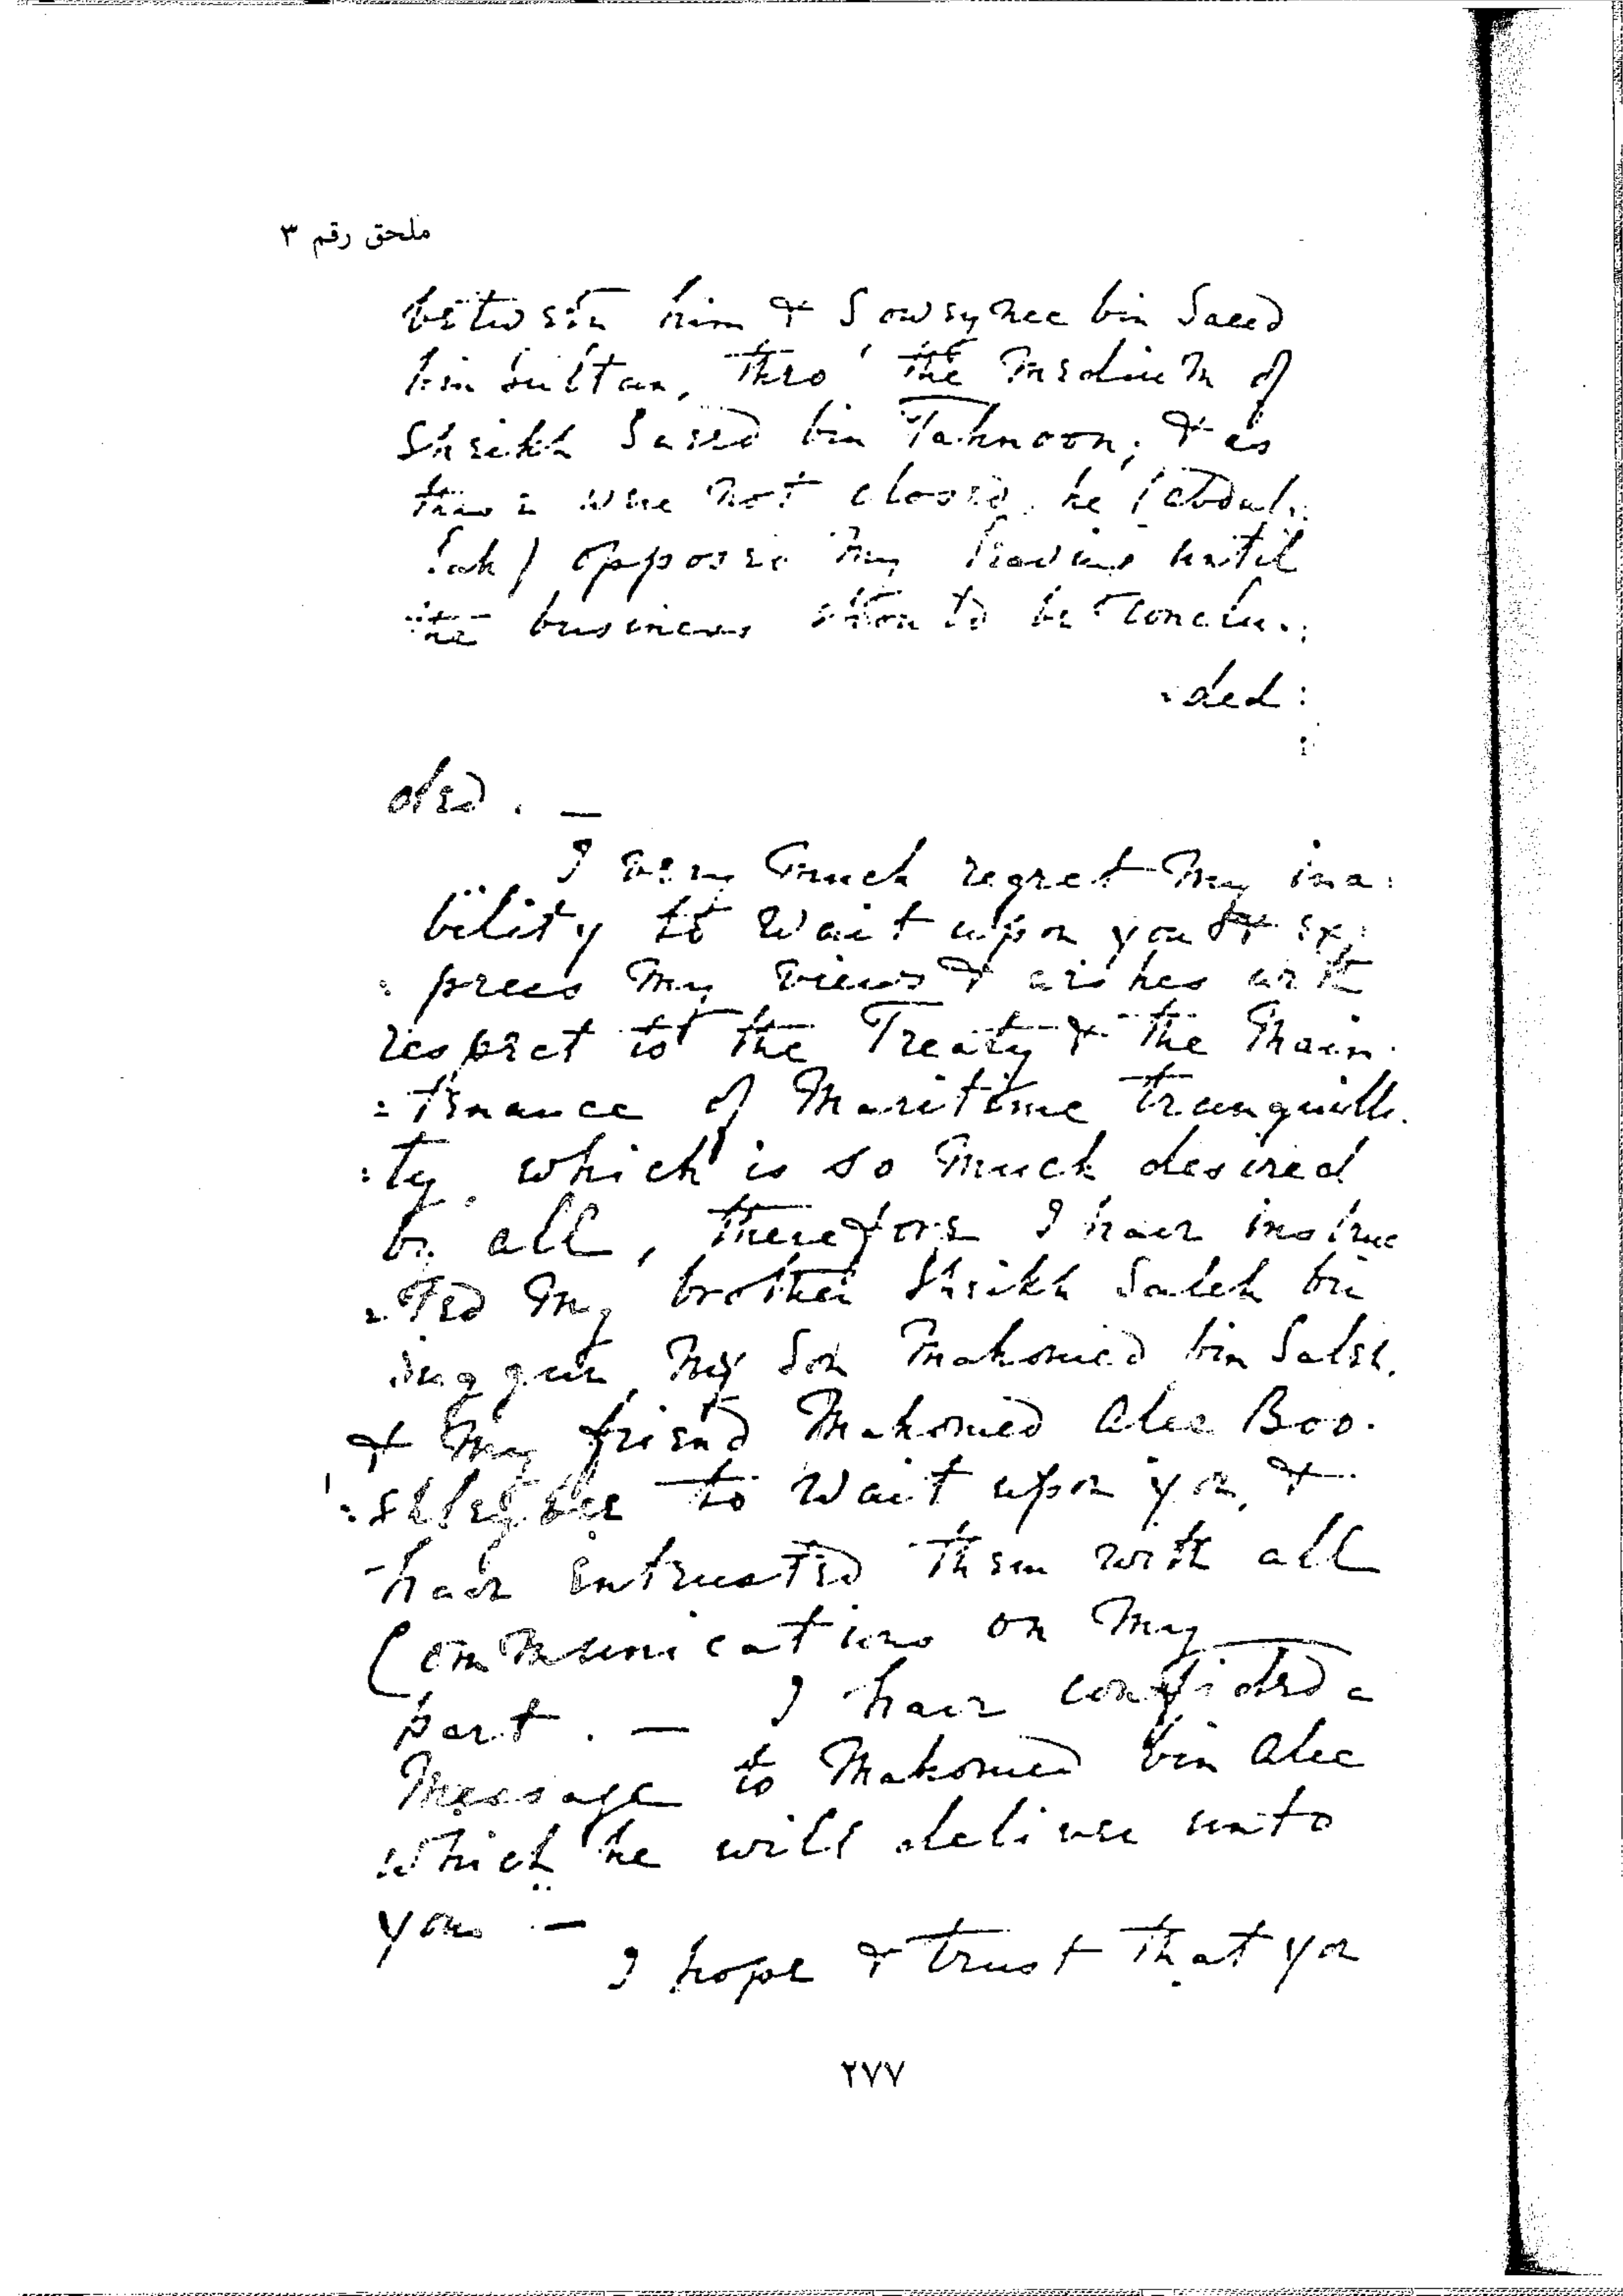 ملحق رقم ٣
between him & Soweynee bin Saeed
bin Sultan, thro' the medium of
Sheikh Saeed bin Tahnoon; & as
were not closed, he (Abdul-
lah) opposed my leaving until
the business should be conclu-
-ded:
ded. —
I very much regret my ina-
bility to wait upon you & ex-
-press my views & wishes with
respect to the Treaty & the Main-
-tenance of Maritime tranquilli-
-ty, which is so much desired
by all, therefore I have instruc
-ted my brother Sheikh Saleh bin
my son Mahomed bin Saleh
& my friend Mahomed Alee Boo-
to wait upon you, &
have entrusted them with all
Communications on my
part. — I have confided a
Message to Mahomed bin Alee
which he will deliver unto
you —
I hope & trust that you
٢٧٧